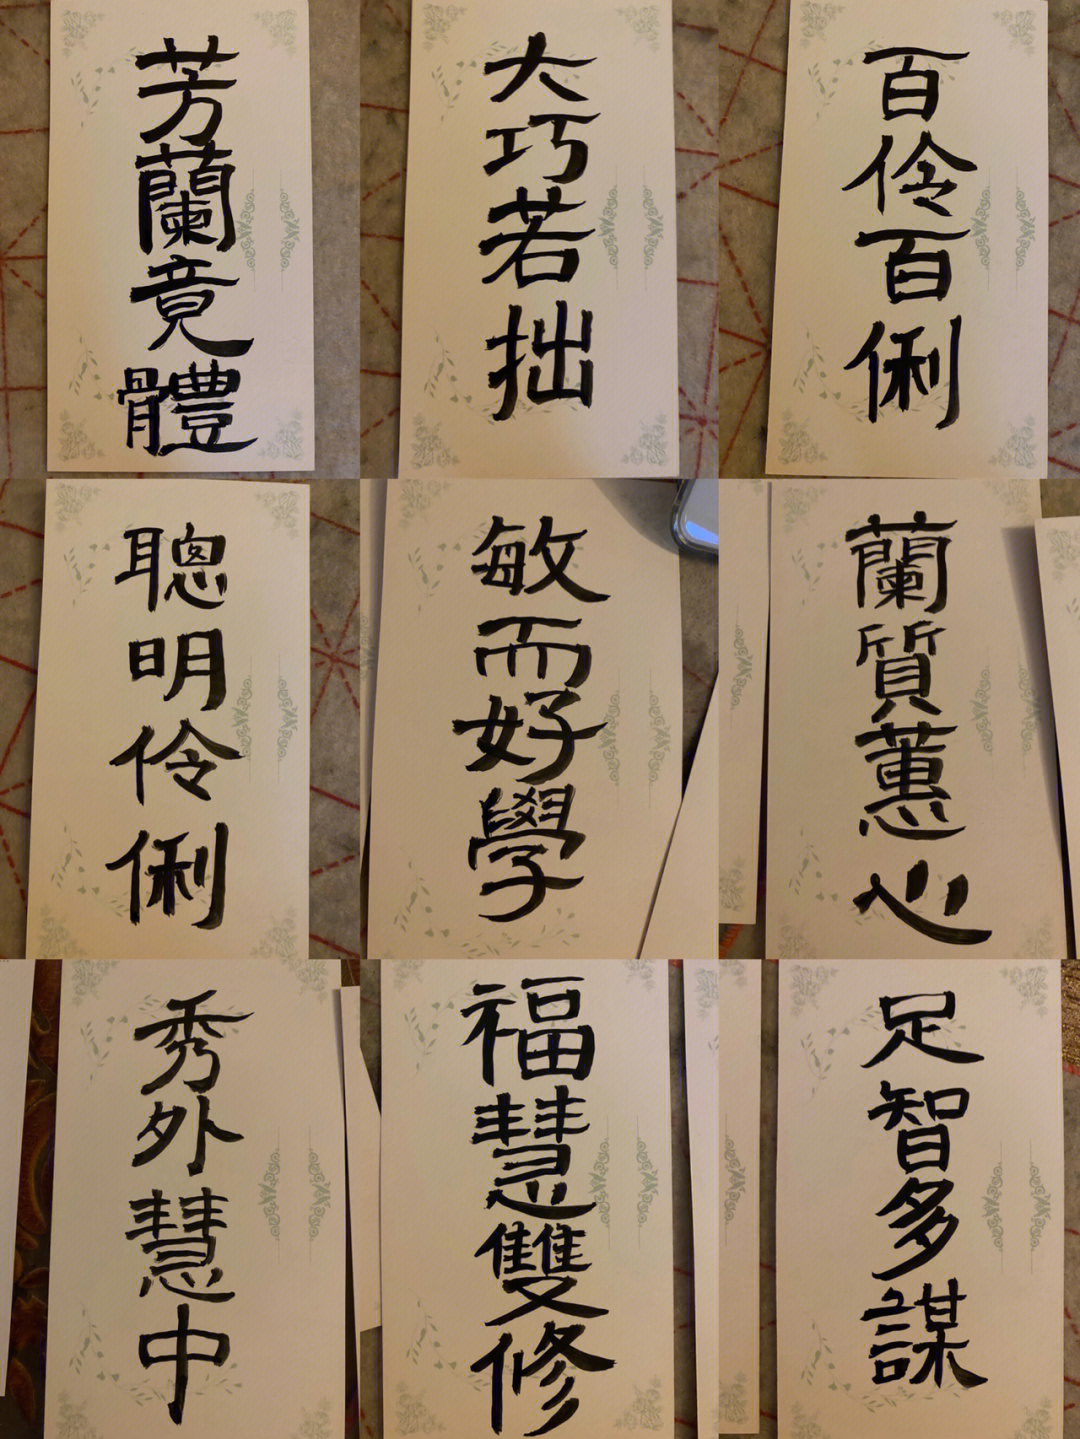 芳蘭竟體
大巧若拙
百伶百俐
聰明伶俐
敏而好學
蘭質蕙心
秀外慧中
福慧雙修
足智多謀